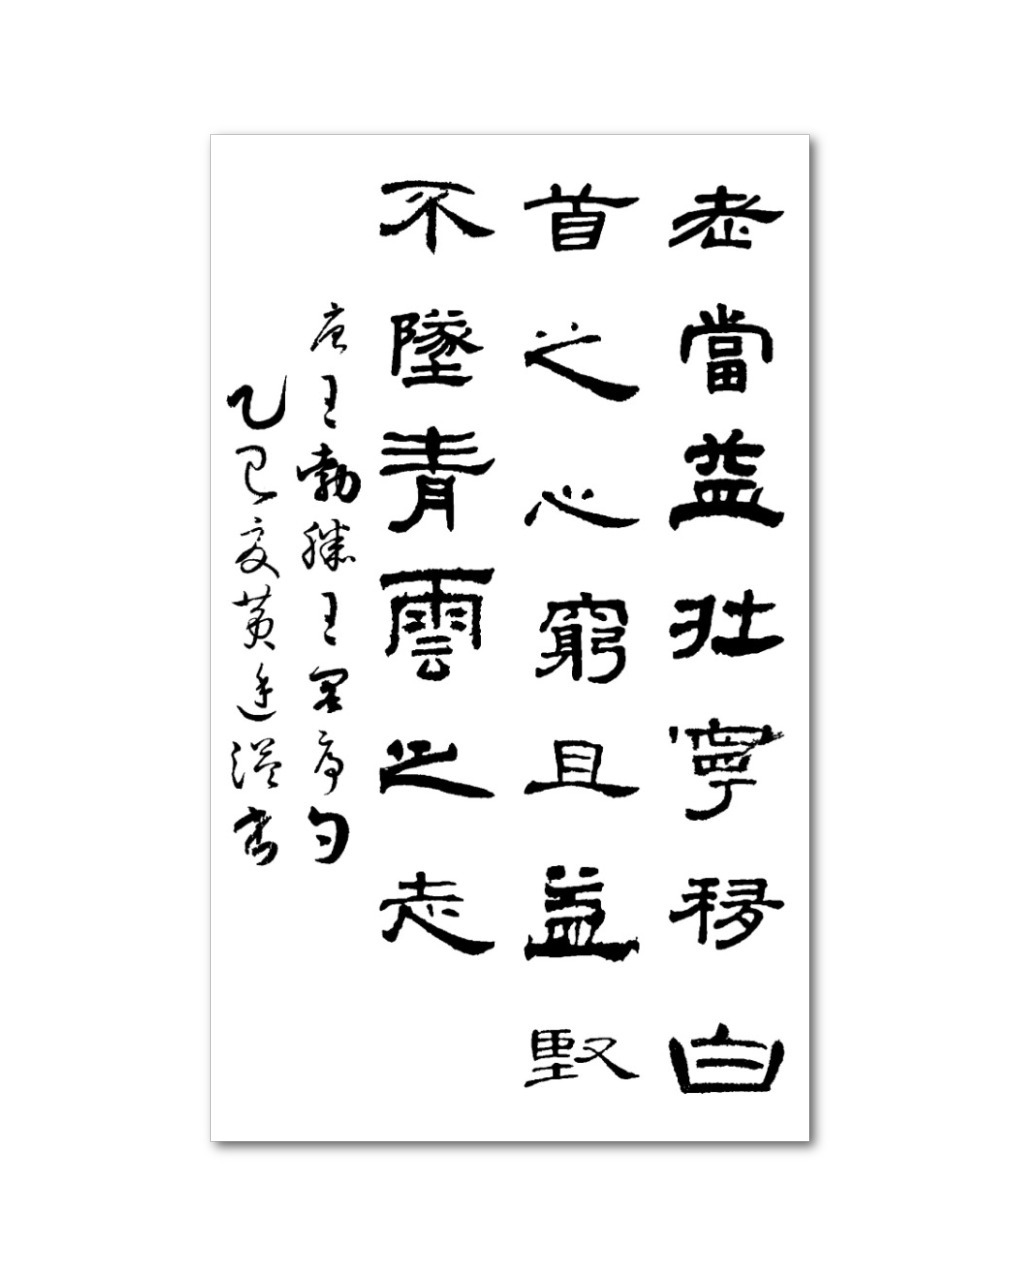 老當益壯寧移白
首之心窮且益堅
不墜青雲之志
唐王勃滕王閣序句
乙巳夏黃廷溢書